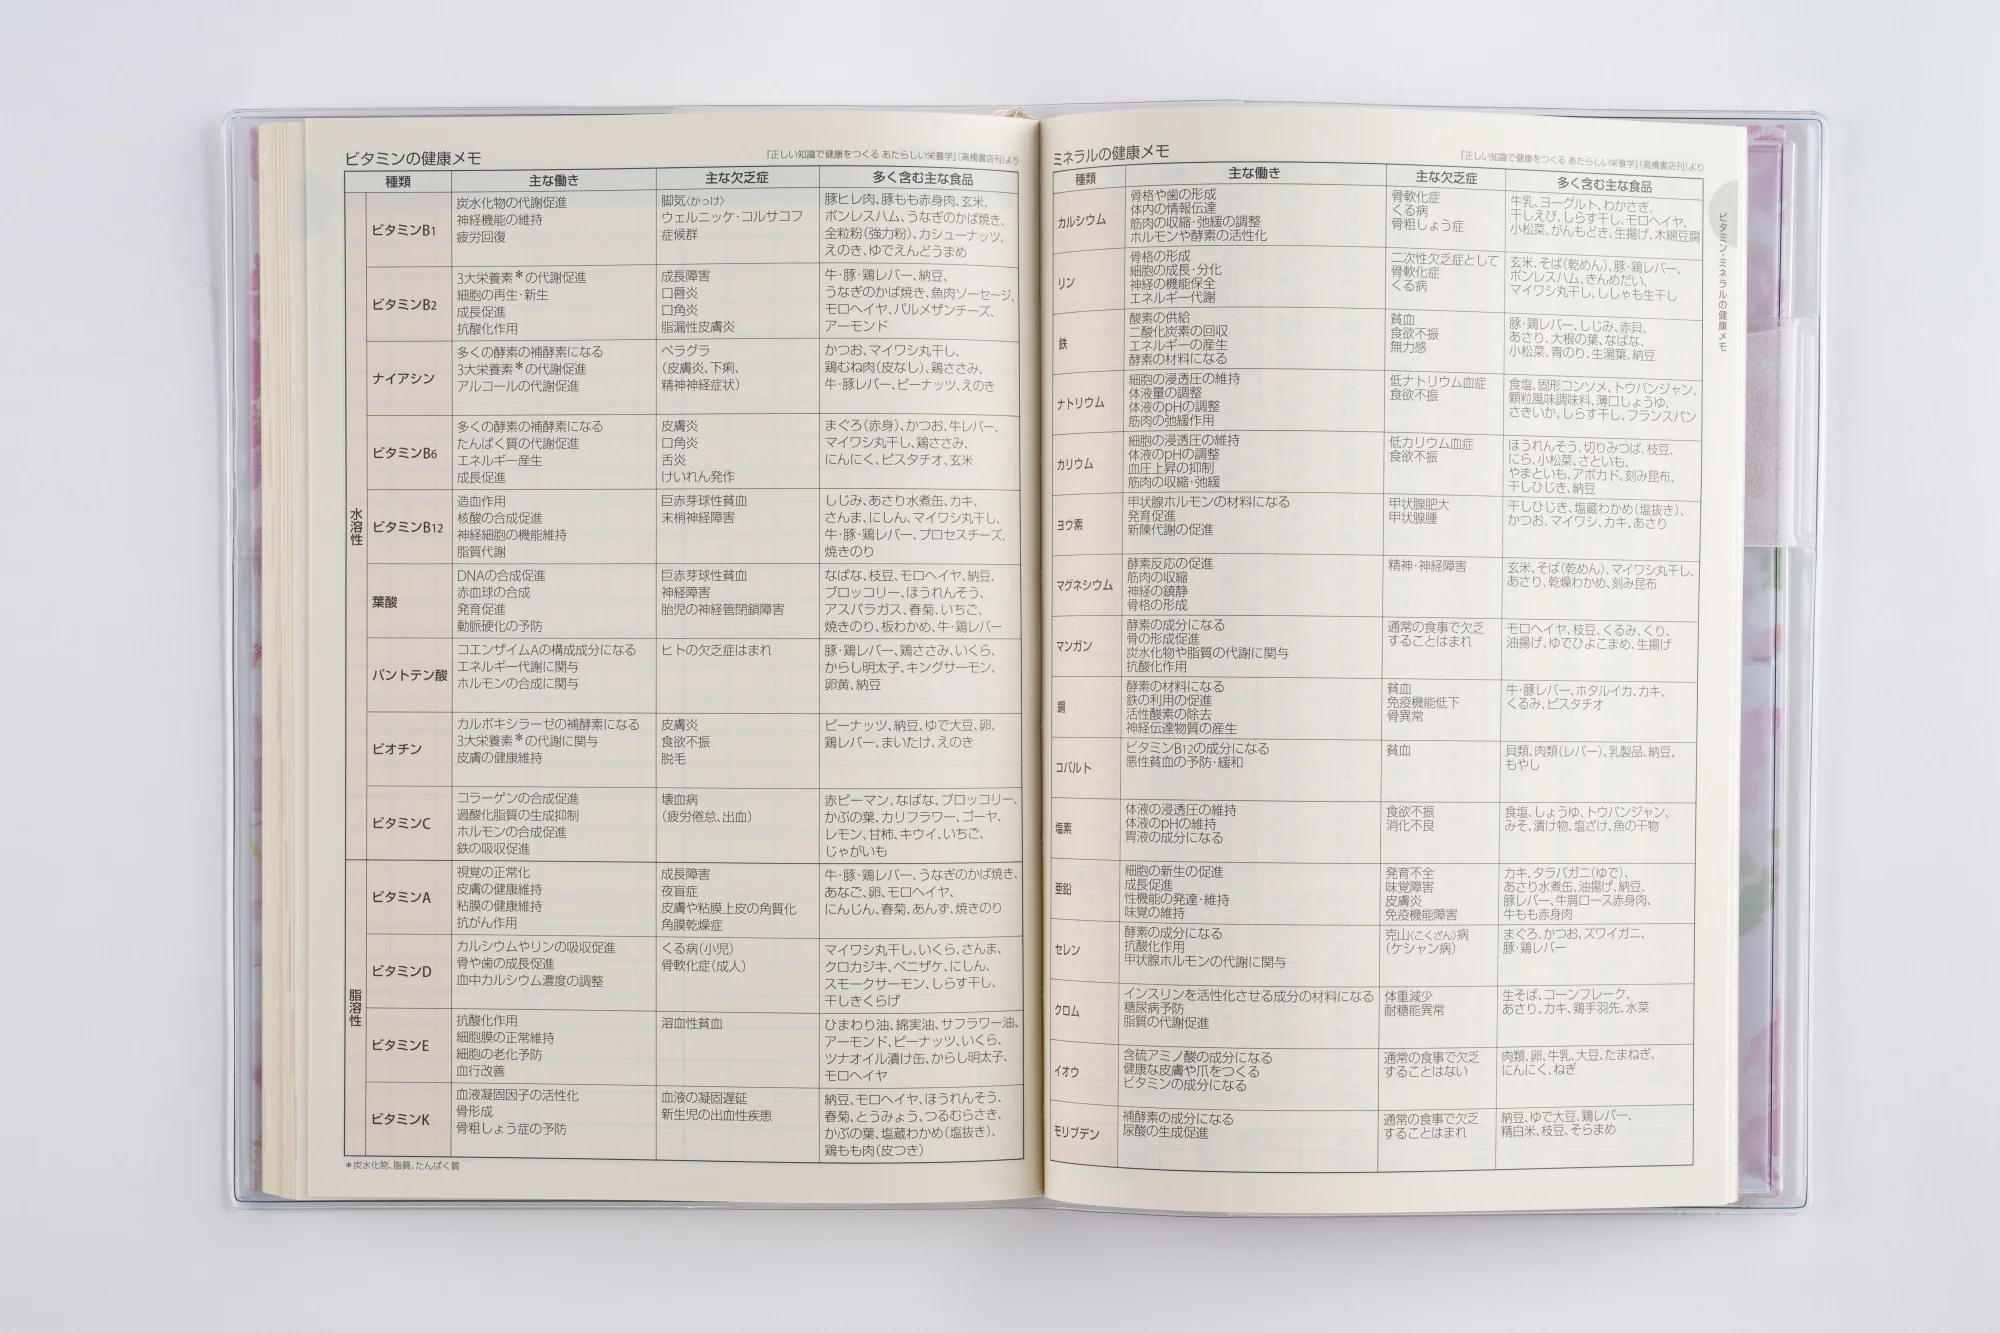 ビタミンの健康メモ
『正しい知識で健康をつくる あたらしい栄養学』(高橋書店刊)より
種類 主な働き 主な欠乏症 多く含む主な食品
水溶性
ビタミンB1
炭水化物の代謝促進
神経機能の維持
疲労回復
脚気〈かっけ〉
ウェルニッケ・コルサコフ
症候群
豚ヒレ肉、豚もも赤身肉、玄米、
ボンレスハム、うなぎのかば焼き、
全粒粉(強力粉)、カシューナッツ、
えのき、ゆでえんどうまめ
ビタミンB2
3大栄養素*の代謝促進
細胞の再生・新生
成長促進
抗酸化作用
成長障害
口唇炎
口角炎
脂漏性皮膚炎
牛・豚・鶏レバー、納豆、
うなぎのかば焼き、魚肉ソーセージ、
モロヘイヤ、パルメザンチーズ、
アーモンド
ナイアシン
多くの酵素の補酵素になる
3大栄養素*の代謝促進
アルコールの代謝促進
ペラグラ
(皮膚炎、下痢、
精神神経症状)
かつお、マイワシ丸干し、
鶏むね肉(皮なし)、鶏ささみ、
牛・豚レバー、ピーナッツ、えのき
ビタミンB6
多くの酵素の補酵素になる
たんぱく質の代謝促進
エネルギー産生
成長促進
皮膚炎
口角炎
舌炎
けいれん発作
まぐろ(赤身)、かつお、牛レバー、
マイワシ丸干し、鶏ささみ、
にんにく、ピスタチオ、玄米
ビタミンB12
造血作用
核酸の合成促進
神経細胞の機能維持
脂質代謝
巨赤芽球性貧血
末梢神経障害
しじみ、あさり水煮缶、カキ、
さんま、にしん、マイワシ丸干し、
牛・豚・鶏レバー、プロセスチーズ、
焼きのり
葉酸
DNAの合成促進
赤血球の合成
発育促進
動脈硬化の予防
巨赤芽球性貧血
神経障害
胎児の神経管閉鎖障害
なばな、枝豆、モロヘイヤ、納豆、
ブロッコリー、ほうれんそう、
アスパラガス、春菊、いちご、
焼きのり、板わかめ、牛・鶏レバー
パントテン酸
コエンザイムAの構成成分になる
エネルギー代謝に関与
ホルモンの合成に関与
ヒトの欠乏症はまれ
豚・鶏レバー、鶏ささみ、いくら、
からし明太子、キングサーモン、
卵黄、納豆
ビオチン
カルボキシラーゼの補酵素になる
3大栄養素*の代謝に関与
皮膚の健康維持
皮膚炎
食欲不振
脱毛
ピーナッツ、納豆、ゆで大豆、卵、
鶏レバー、まいたけ、えのき
ビタミンC
コラーゲンの合成促進
過酸化脂質の生成抑制
ホルモンの合成促進
鉄の吸収促進
壊血病
(疲労倦怠、出血)
赤ピーマン、なばな、ブロッコリー、
かぶの葉、カリフラワー、ゴーヤ、
レモン、甘柿、キウイ、いちご、
じゃがいも
脂溶性
ビタミンA
視覚の正常化
皮膚の健康維持
粘膜の健康維持
抗がん作用
成長障害
夜盲症
皮膚や粘膜上皮の角質化
角膜乾燥症
牛・豚・鶏レバー、うなぎのかば焼き、
あなご、卵、モロヘイヤ、
にんじん、春菊、あんず、焼きのり
ビタミンD
カルシウムやリンの吸収促進
骨や歯の成長促進
血中カルシウム濃度の調整
くる病(小児)
骨軟化症(成人)
マイワシ丸干し、いくら、さんま、
クロカジキ、ベニザケ、にしん、
スモークサーモン、しらす干し、
干しきくらげ
ビタミンE
抗酸化作用
細胞膜の正常維持
細胞の老化予防
血行改善
溶血性貧血
ひまわり油、綿実油、サフラワー油、
アーモンド、ピーナッツ、いくら、
ツナオイル漬け缶、からし明太子、
モロヘイヤ
ビタミンK
血液凝固因子の活性化
骨形成
骨粗しょう症の予防
血液の凝固遅延
新生児の出血性疾患
納豆、モロヘイヤ、ほうれんそう、
春菊、とうみょう、つるむらさき、
かぶの葉、塩蔵わかめ(塩抜き)、
鶏もも肉(皮つき)
*炭水化物、脂質、たんぱく質
ミネラルの健康メモ
『正しい知識で健康をつくる あたらしい栄養学』(高橋書店刊)より
種類 主な働き 主な欠乏症 多く含む主な食品
カルシウム
骨格や歯の形成
体内の情報伝達
筋肉の収縮・弛緩の調整
ホルモンや酵素の活性化
骨軟化症
くる病
骨粗しょう症
牛乳、ヨーグルト、わかさぎ、
干しえび、しらす干し、モロヘイヤ、
小松菜、がんもどき、生揚げ、木綿豆腐
リン
骨格の形成
細胞の成長・分化
神経の機能保全
エネルギー代謝
二次性欠乏症として
骨軟化症
くる病
玄米、そば(乾めん)、豚・鶏レバー、
ボンレスハム、きんめだい、
マイワシ丸干し、ししゃも生干し
鉄
酸素の供給
二酸化炭素の回収
エネルギーの産生
酵素の材料になる
貧血
食欲不振
無力感
豚・鶏レバー、しじみ、赤貝、
あさり、大根の葉、なばな、
小松菜、青のり、生湯葉、納豆
ナトリウム
細胞の浸透圧の維持
体液量の調整
体液のpHの調整
筋肉の弛緩作用
低ナトリウム血症
食欲不振
食塩、固形コンソメ、トウバンジャン、
顆粒風味調味料、薄口しょうゆ、
さきいか、しらす干し、フランスパン
カリウム
細胞の浸透圧の維持
体液のpHの調整
血圧上昇の抑制
筋肉の収縮・弛緩
低カリウム血症
食欲不振
ほうれんそう、切りみつば、枝豆、
にら、小松菜、さといも、
やまといも、アボカド、刻み昆布、
干しひじき、納豆
ヨウ素
甲状腺ホルモンの材料になる
発育促進
新陳代謝の促進
甲状腺肥大
甲状腺腫
干しひじき、塩蔵わかめ(塩抜き)、
かつお、マイワシ、カキ、あさり
マグネシウム
酵素反応の促進
筋肉の収縮
神経の鎮静
骨格の形成
精神・神経障害
玄米、そば(乾めん)、マイワシ丸干し、
あさり、乾燥わかめ、刻み昆布
マンガン
酵素の成分になる
骨の形成促進
炭水化物や脂質の代謝に関与
抗酸化作用
通常の食事で欠乏
することはまれ
モロヘイヤ、枝豆、くるみ、くり、
油揚げ、ゆでひよこまめ、生揚げ
銅
酵素の材料になる
鉄の利用の促進
活性酸素の除去
神経伝達物質の産生
貧血
免疫機能低下
骨異常
牛・豚レバー、ホタルイカ、カキ、
くるみ、ピスタチオ
コバルト
ビタミンB12の成分になる
悪性貧血の予防・緩和
貧血
貝類、肉類(レバー)、乳製品、納豆、
もやし
塩素
体液の浸透圧の維持
体液のpHの維持
胃液の成分になる
食欲不振
消化不良
食塩、しょうゆ、トウバンジャン、
みそ、漬け物、塩ざけ、魚の干物
亜鉛
細胞の新生の促進
成長促進
性機能の発達・維持
味覚の維持
発育不全
味覚障害
皮膚炎
免疫機能障害
カキ、タラバガニ(ゆで)、
あさり水煮缶、油揚げ、納豆、
豚レバー、牛肩ロース赤身肉、
牛もも赤身肉
セレン
酵素の成分になる
抗酸化作用
甲状腺ホルモンの代謝に関与
克山〈こくざん〉病
(ケシャン病)
まぐろ、かつお、ズワイガニ、
豚・鶏レバー
クロム
インスリンを活性化させる成分の材料になる
糖尿病予防
脂質の代謝促進
体重減少
耐糖能異常
生そば、コーンフレーク、
あさり、カキ、鶏手羽先、水菜
イオウ
含硫アミノ酸の成分になる
健康な皮膚や爪をつくる
ビタミンの成分になる
通常の食事で欠乏
することはない
肉類、卵、牛乳、大豆、たまねぎ、
にんにく、ねぎ
モリブデン
補酵素の成分になる
尿酸の生成促進
通常の食事で欠乏
することはまれ
納豆、ゆで大豆、鶏レバー、
精白米、枝豆、そらまめ
ビタミン・ミネラルの健康メモ